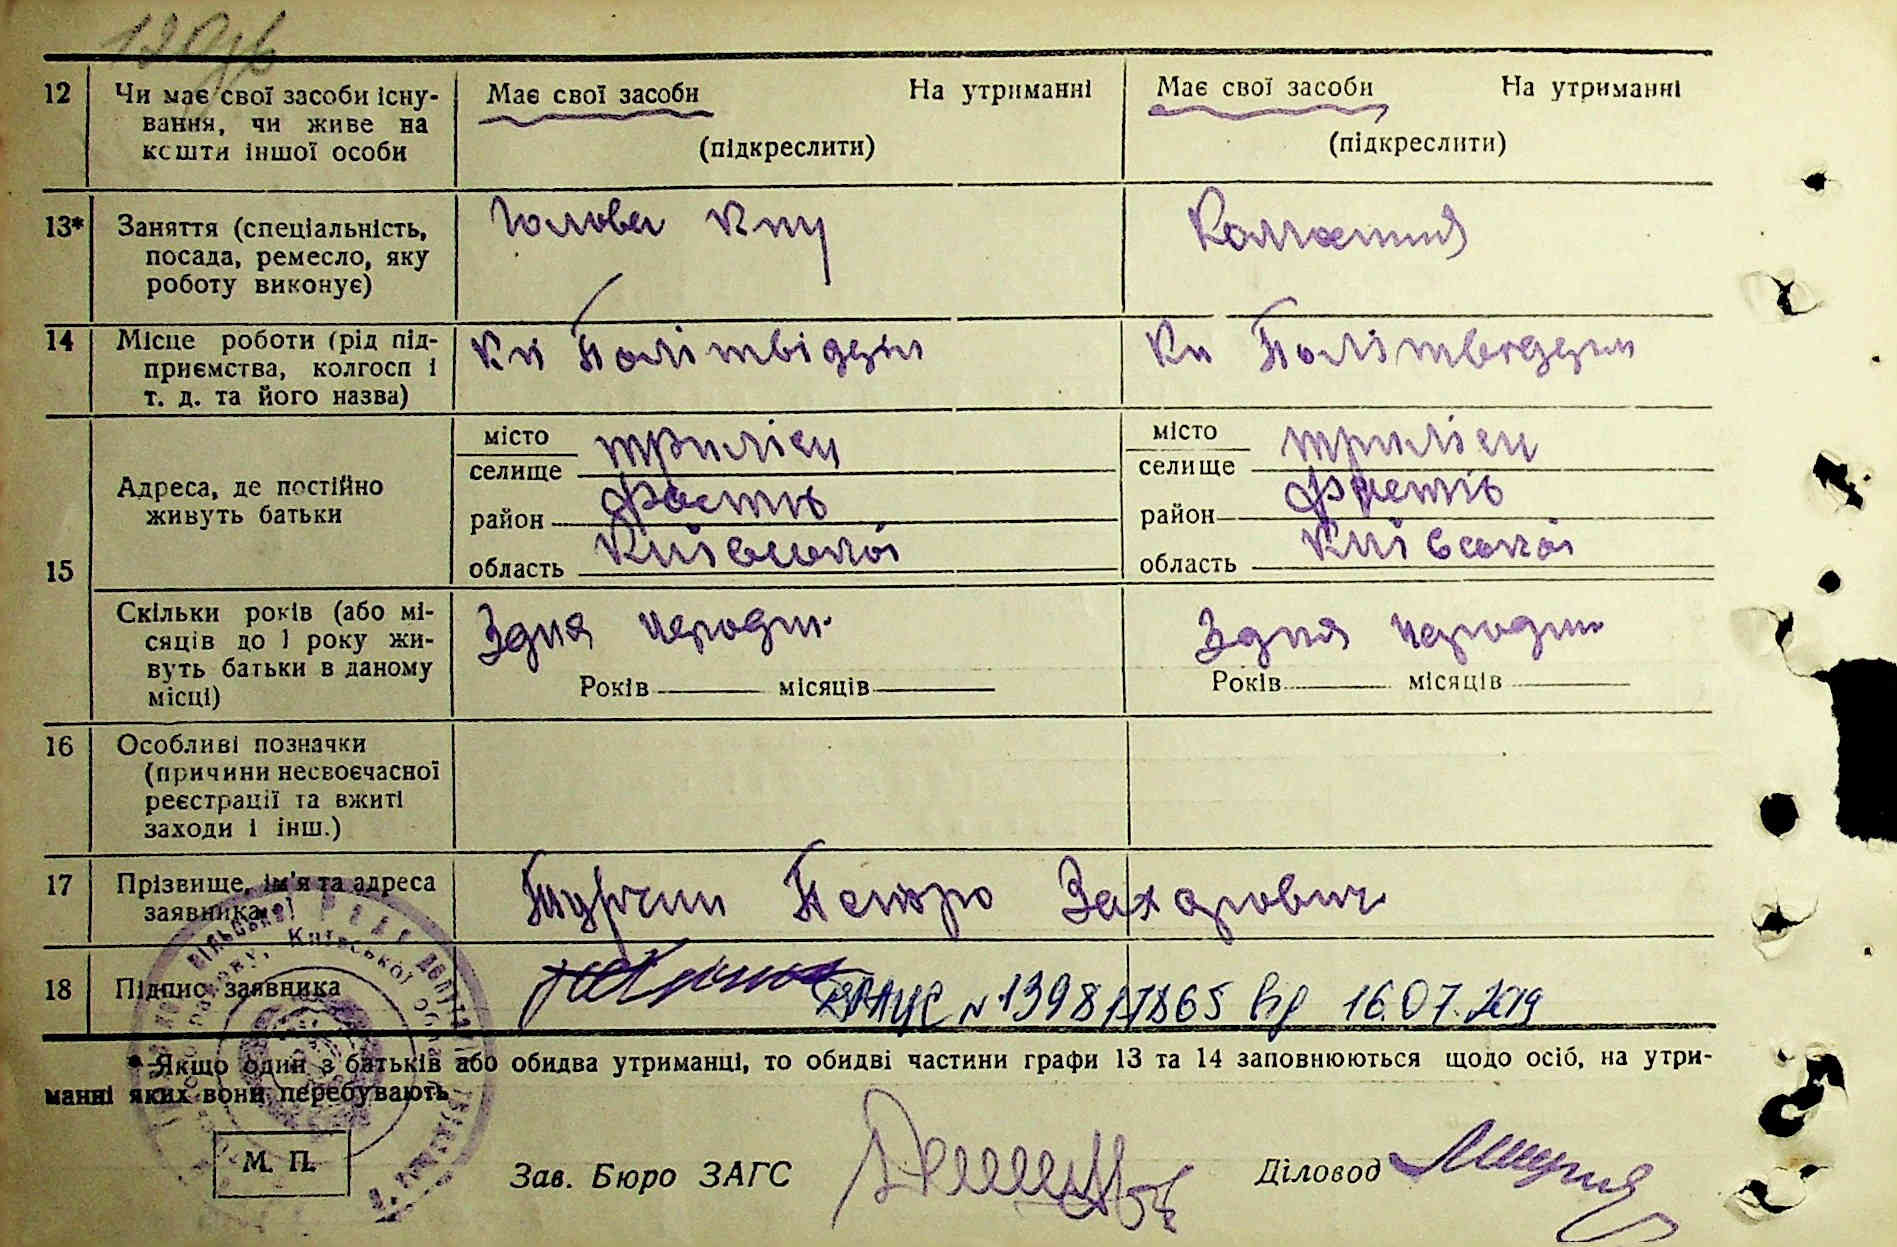 12 Чи має свої засоби існу-
вання, чи живе на
кошти іншої особи
Має свої засоби На утриманні
(підкреслити)
Має свої засоби На утриманні
(підкреслити)
13* Заняття (спеціальність,
посада, ремесло, яку
роботу виконує)
Голова
Колгоспниця
14 Місце роботи (рід під-
приємства, колгосп і
т. д. та його назва)
Політвідділ
Політвідділ
15 Адреса, де постійно
живуть батьки
місто
селище Триліси
район Фастів
область Київської
місто
селище Триліси
район Фастів
область Київської
Скільки років (або мі-
сяців до 1 року жи-
вуть батьки в даному
місці)
З дня народж.
Років місяців
З дня народж.
Років місяців
16 Особливі позначки
(причини несвоєчасної
реєстрації та вжиті
заходи і інш.)
17 Прізвище, ім'я та адреса
заявника
Турчин Петро Захарович
18 Підпис заявника
ДРАЦС № 13981/7865 від 16.07.2019
* Якщо один з батьків або обидва утриманці, то обидві частини графи 13 та 14 заповнюються щодо осіб, на утри-
манні яких вони перебувають
М. П.
Зав. Бюро ЗАГС
Діловод